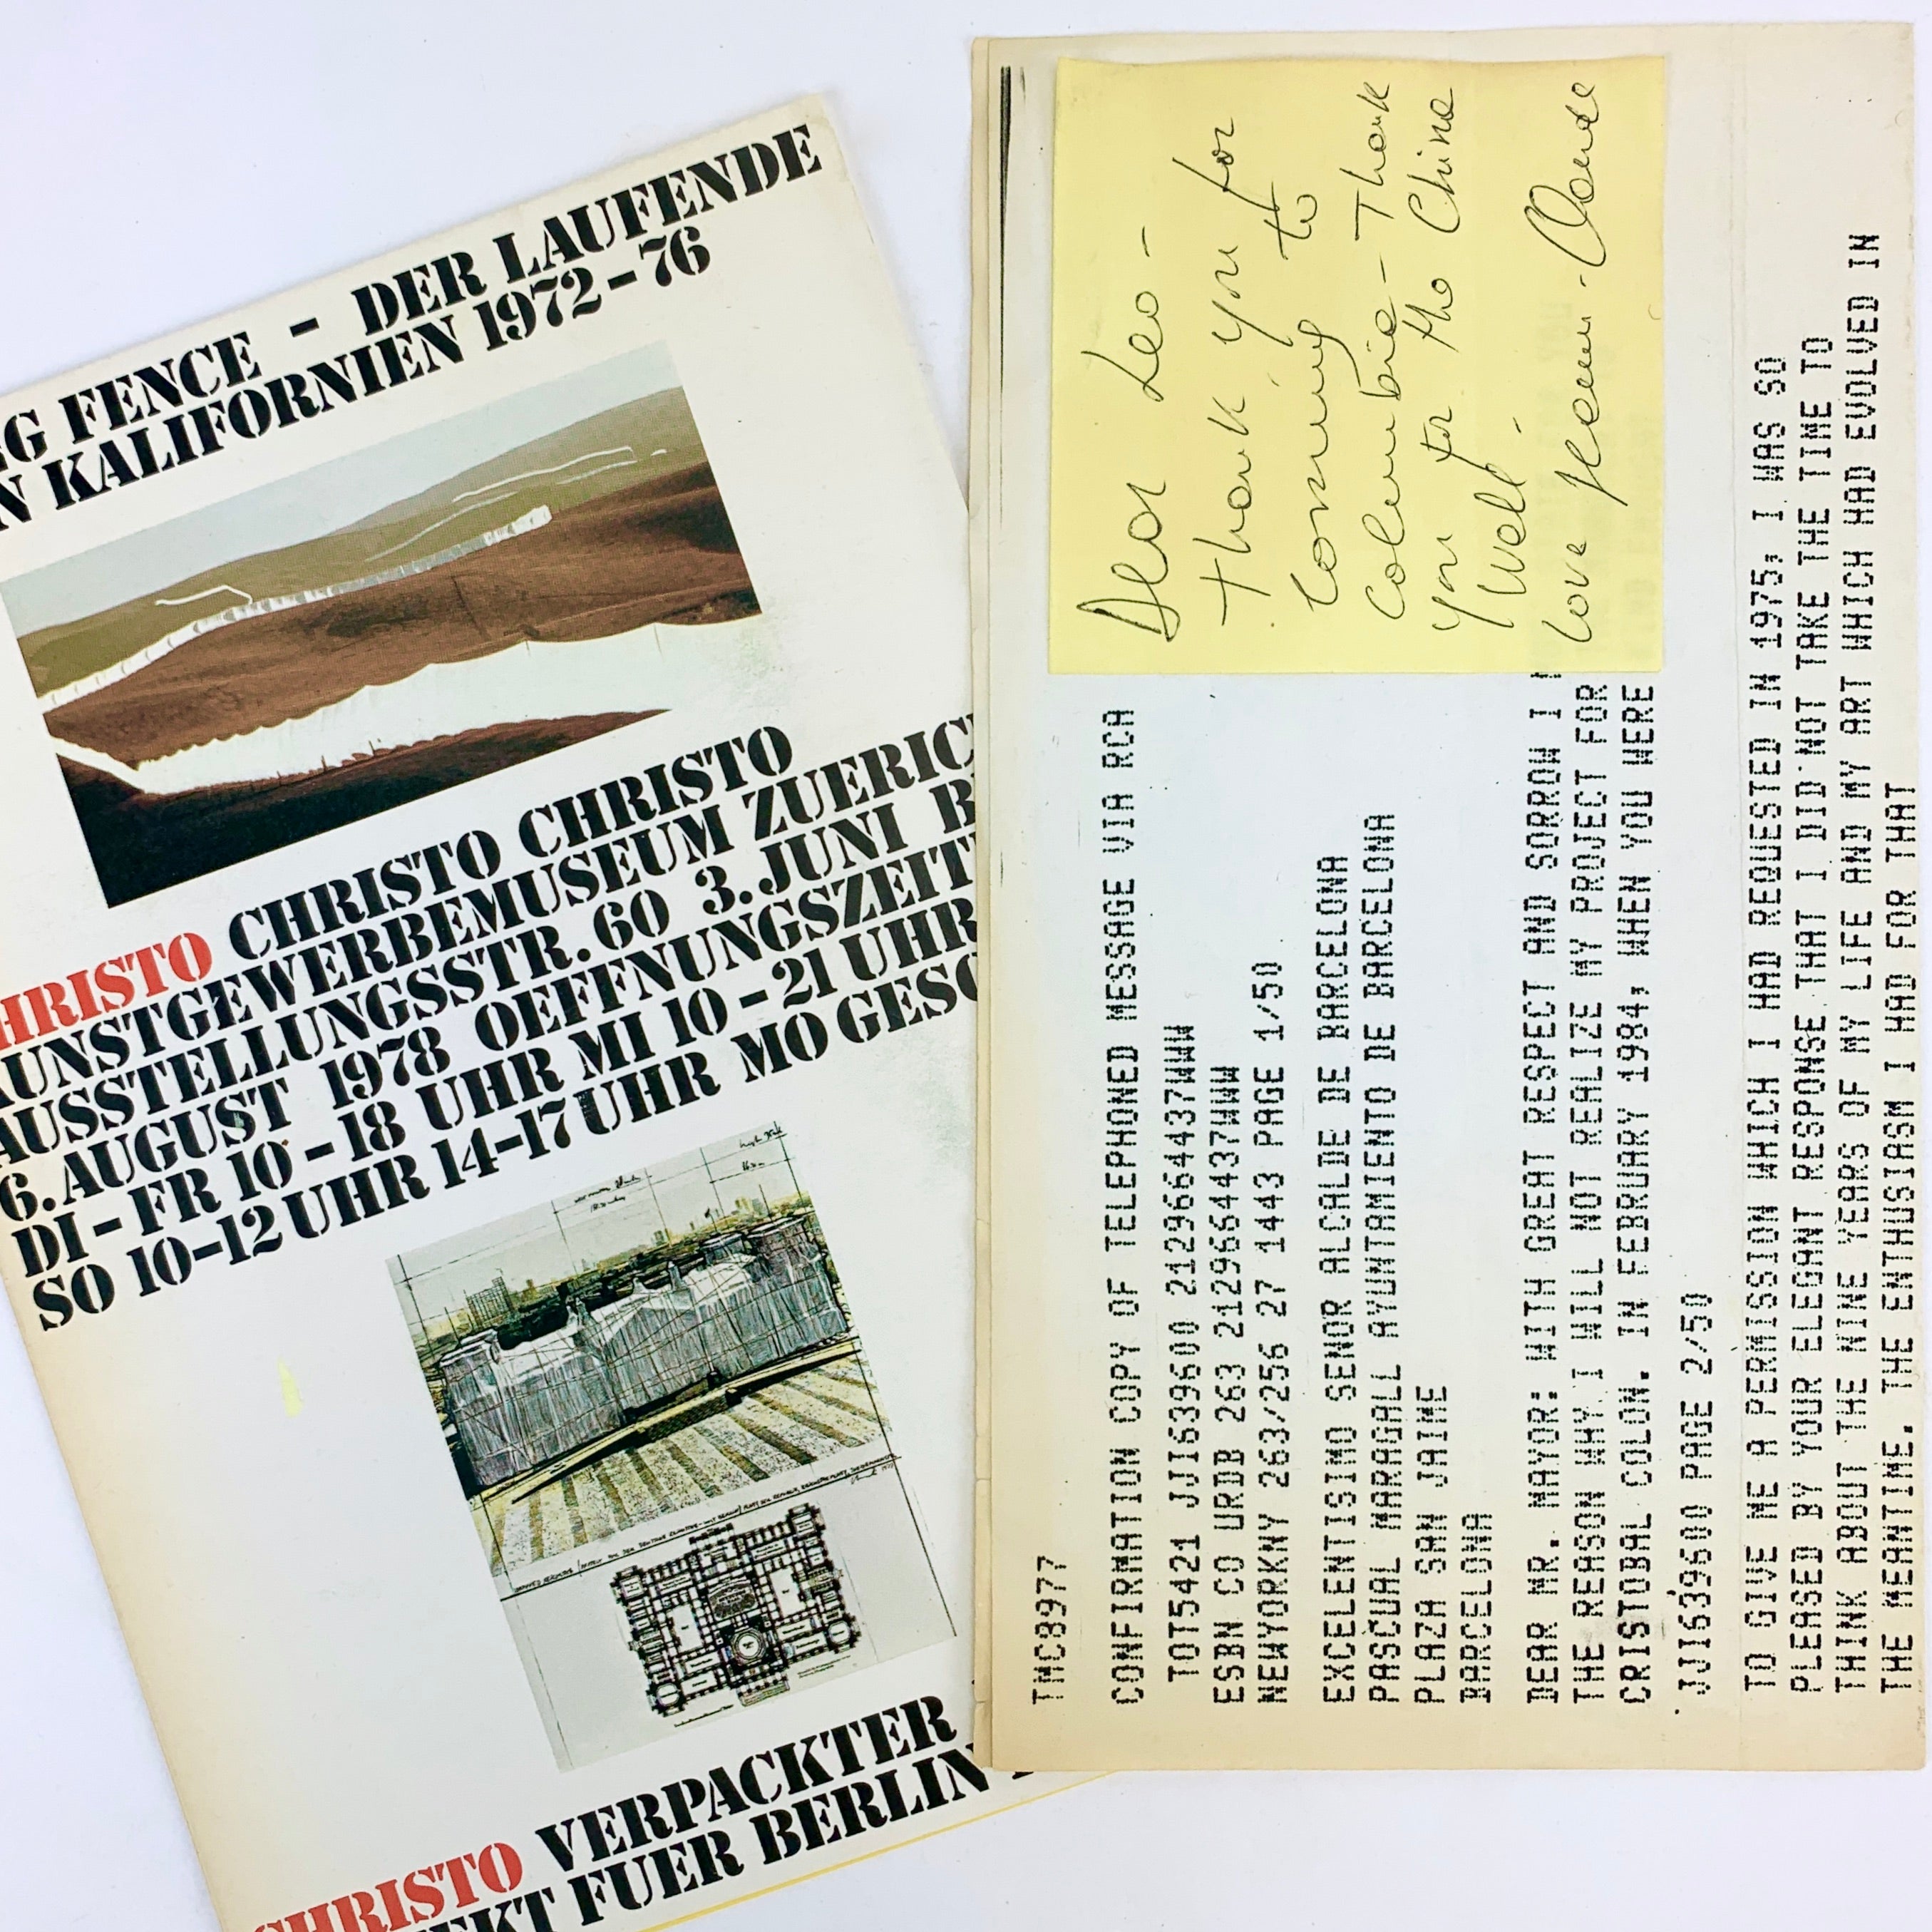 G FENCE - DER LAUFENDE
N KALIFORNIEN 1972-76
HRISTO CHRISTO CHRISTO
KUNSTGEWERBEMUSEUM ZUERIC
AUSSTELLUNGSSTR. 60 3. JUNI B
6. AUGUST 1978 OEFFNUNGSZEIT
DI - FR 10 - 18 UHR MI 10 - 21 UHR
SO 10-12 UHR 14-17 UHR MO GESC
CHRISTO VERPACKTER
EKT FUER BERLIN
Dear Leo -
Thank you for
Coming to
Columbia - Thank
you for the China
Well -
love Jeanne-Claude
TMC8977
CONFIRMATION COPY OF TELEPHONED MESSAGE VIA RCA
TOT5421 JJI639600 2129664437WWW
ESBN CO URDB 263 2129664437WWW
NEWYORKNY 263/256 27 1443 PAGE 1/50
EXCELENTISIMO SENOR ALCALDE DE BARCELONA
PASCUAL MARAGALL AYUNTAMIENTO DE BARCELONA
PLAZA SAN JAIME
BARCELONA
DEAR MR. MAYOR: WITH GREAT RESPECT AND SORROW I
THE REASON WHY I WILL NOT REALIZE MY PROJECT FOR
CRISTOBAL COLON. IN FEBRUARY 1984, WHEN YOU WERE
JJI639600 PAGE 2/50
TO GIVE ME A PERMISSION WHICH I HAD REQUESTED IN 1975, I WAS SO
PLEASED BY YOUR ELEGANT RESPONSE THAT I DID NOT TAKE THE TIME TO
THINK ABOUT THE NINE YEARS OF MY LIFE AND MY ART WHICH HAD EVOLVED IN
THE MEANTIME. THE ENTHUSIASM I HAD FOR THAT